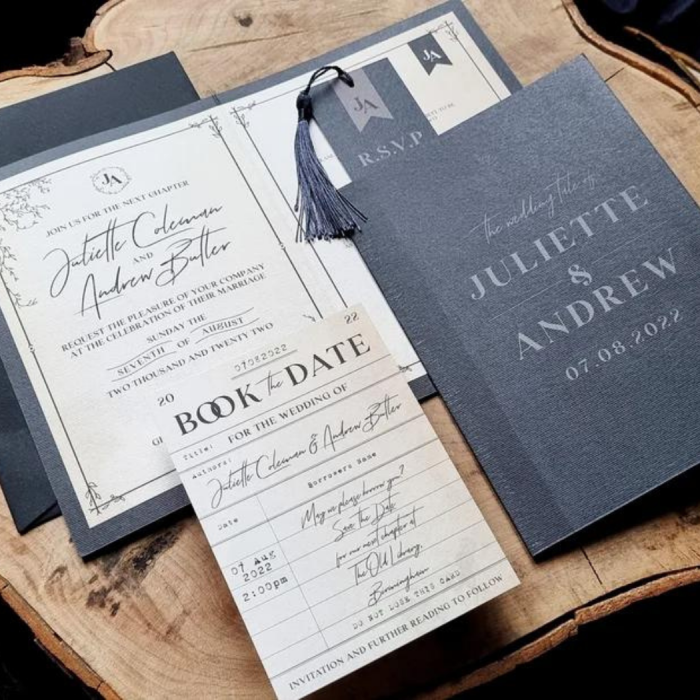 JA
JOIN US FOR THE NEXT CHAPTER
Juliette Coleman
AND
Andrew Butler
REQUEST THE PLEASURE OF YOUR COMPANY
AT THE CELEBRATION OF THEIR MARRIAGE
SUNDAY THE
SEVENTH OF AUGUST
TWO THOUSAND AND TWENTY TWO
JA
R.S.V.P
JA
the wedding tale of
JULIETTE
&
ANDREW
07.08.2022
20 07082022 22
BOOK the DATE
Title: FOR THE WEDDING OF
Authors: Juliette Coleman & Andrew Butler
Borrowers Name
Date
May we please borrow you?
Save the Date
for our next chapter at
The Old Library,
Birmingham
07 Aug
2022
2:00pm
DO NOT LOSE THIS CARD
INVITATION AND FURTHER READING TO FOLLOW